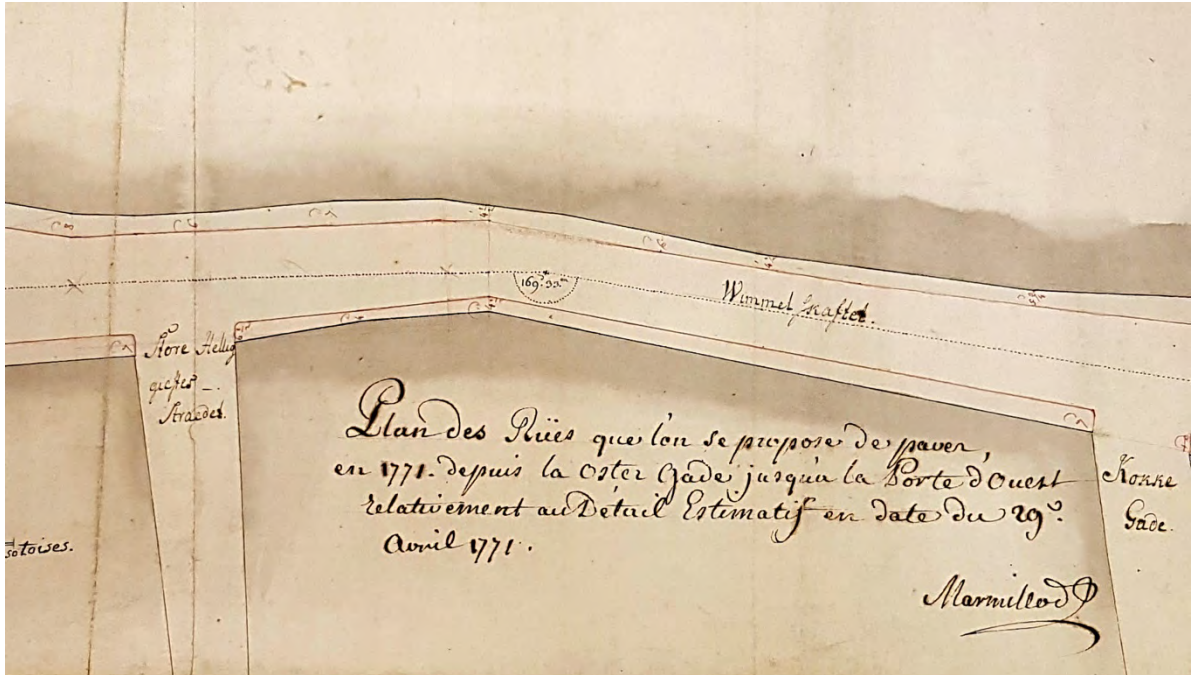 169.
Wimmel Skaftet.
Store Hellig
giestes
Straedet.
Plan des Rües que l'on se propose de paver,
en 1771. depuis la Oster Gade jusqu'a la Porte d'Ouest
relativement au Détail Estimatif en date du 29.e
Avril 1771.
Konke
Gade.
toises.
Marmillod